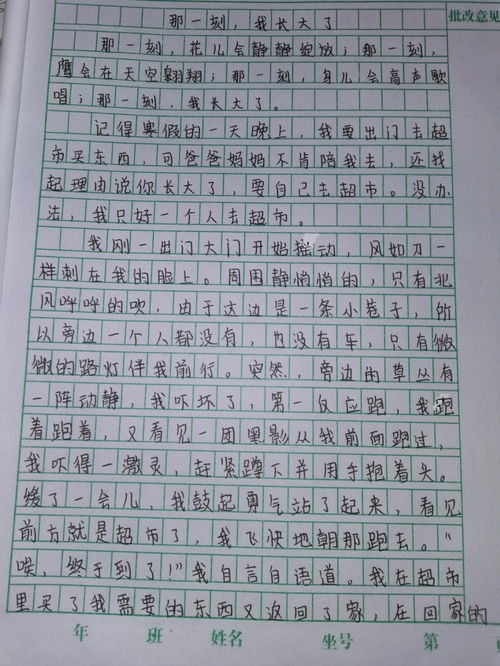 那一刻，我长大了
批改意见
那一刻，花儿会静静绽放；那一刻，
鹰会在天空翱翔；那一刻，鸟儿会高声歌
唱；那一刻，我长大了。
记得寒假的一天晚上，我要出门去超
市买东西，可爸爸妈妈不肯陪我去，还找
起理由说你长大了，要自己去超市。没办
法，我只好一个人去超市。
我刚一出门大门开始摇动，风如刀一
样刺在我的脸上。周围静悄悄的，只有北
风呼呼的吹，由于这边是一条小巷子，所
以旁边一个人都没有，也没有车，只有微
微的路灯伴我前行。突然，旁边的草丛有
一阵动静，我吓坏了，第一反应跑，我跑
着跑着，又看见一团黑影从我前面跑过，
我吓得一激灵，赶紧蹲下并用手抱着头。
缓了一会儿，我鼓起勇气站了起来，看见
前方就是超市了，我飞快地朝那跑去。“
唉，终于到了！”我自言自语道。我在超市
里买了我需要的东西又返回了家，在回家的
年 班 姓名 坐号 第